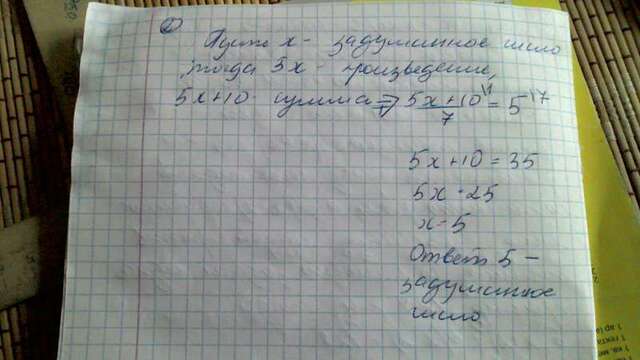 ②
Пусть x - задуманное число
, тогда 5x - произведение,
5x+10 - сумма ⇒ (5x+10)/7 \1 = 5 \7
5x+10=35
5x=25
x=5
Ответ 5 -
задуманное
число